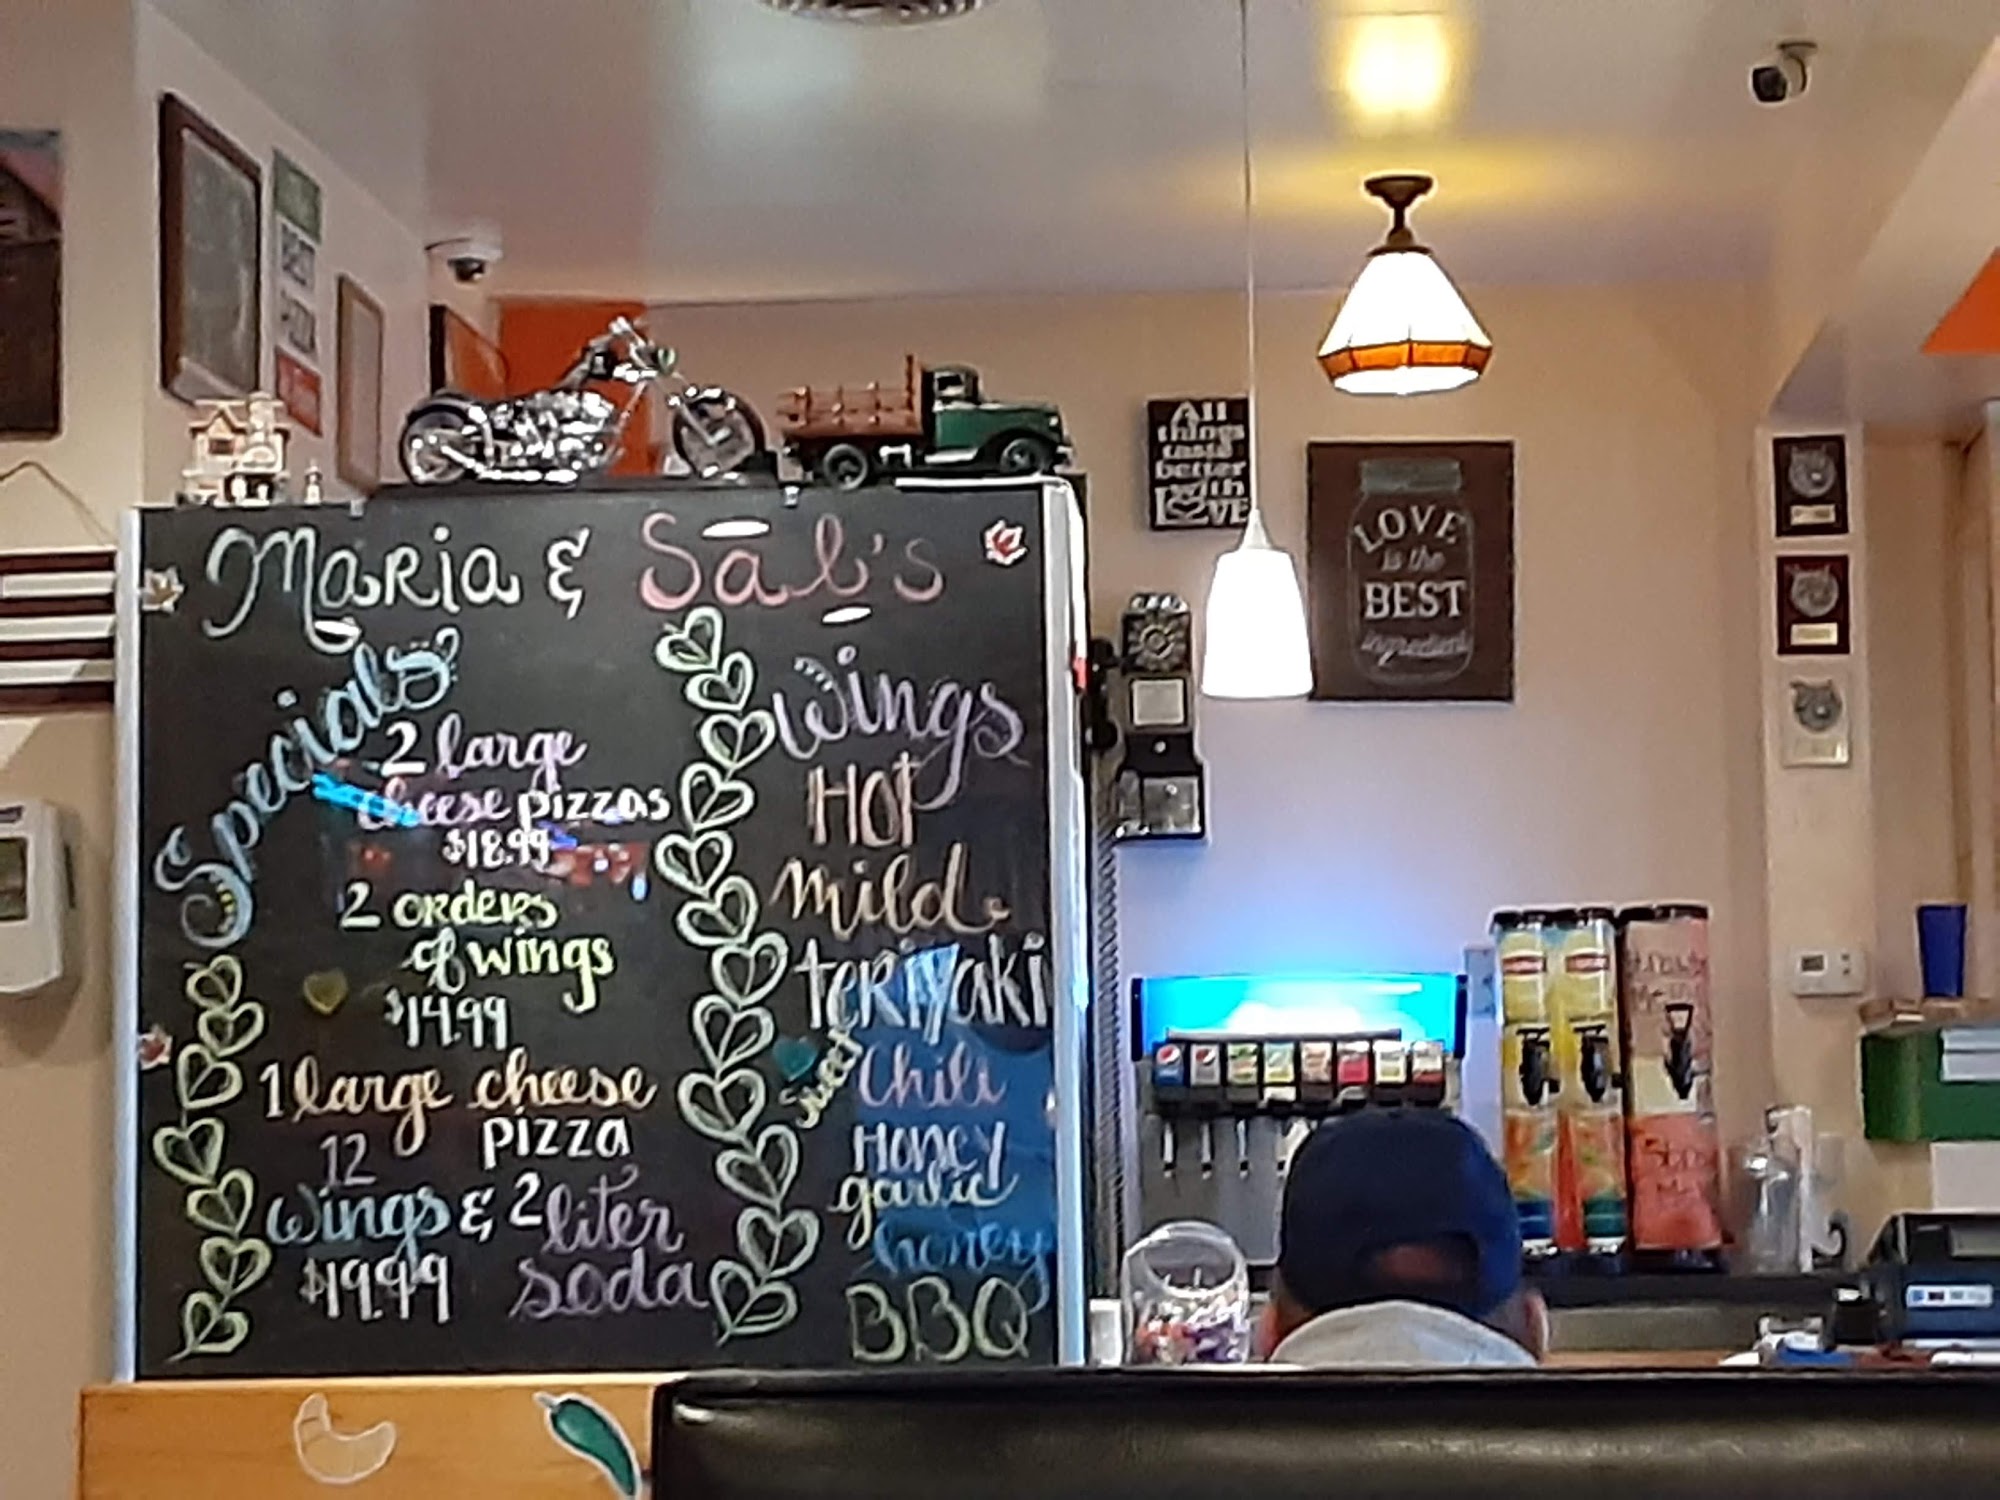 Maria & Sal's
Specials
2 large
cheese pizzas
$18.99
2 orders
of wings
$14.99
1 large cheese
pizza
12
wings & 2 liter
soda
$19.99
Wings
Hot
mild
teriyaki
sweet Chili
Honey
garlic
honey
BBQ
BEST
PIZZA
All
things
taste
better
with
LOVE
LOVE
is the
BEST
ingredient